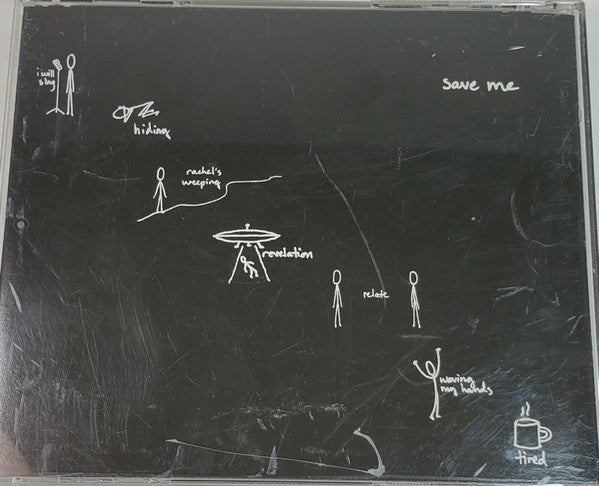 i will
sing
save me
hiding
rachel's
weeping
revelation
relate
waving
my hands
tired